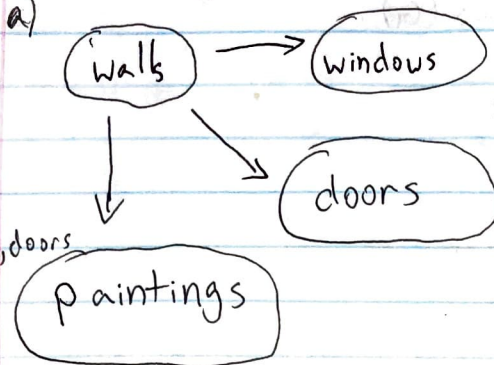 a)
walls
windows
doors
,doors
paintings